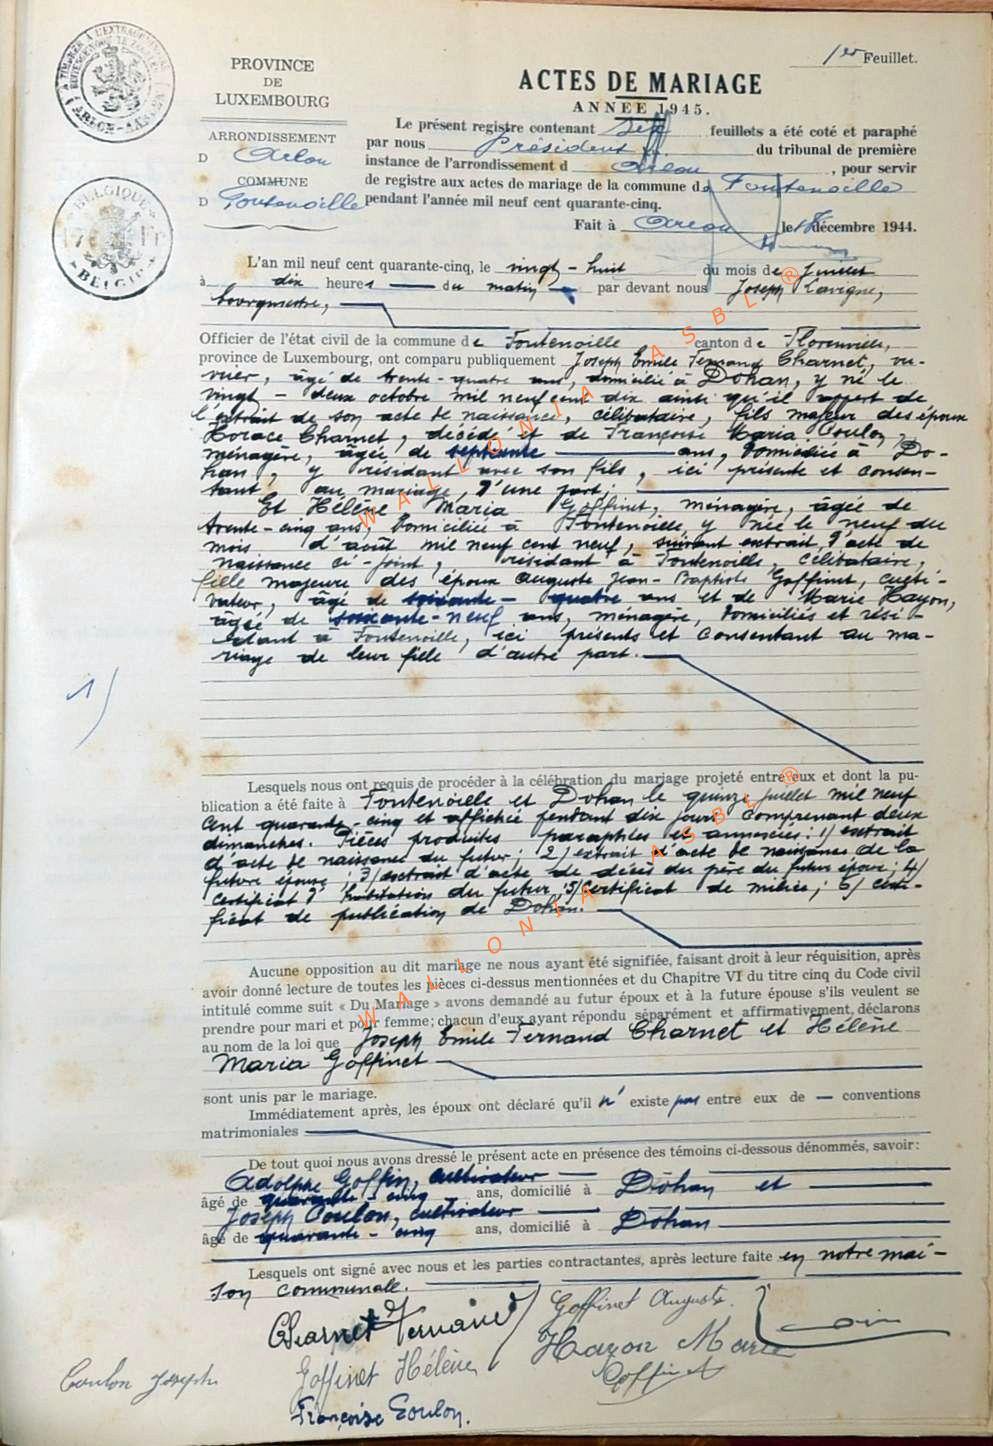 1er Feuillet.
PROVINCE
DE
LUXEMBOURG
ARRONDISSEMENT
D Arlon
COMMUNE
D Fontenoille
BELGIQUE
BELGIE
ACTES DE MARIAGE
ANNÉE 1945.
Le présent registre contenant feuillets a été coté et paraphé
par nous Président du tribunal de première
instance de l'arrondissement d Arlon, pour servir
de registre aux actes de mariage de la commune de Fontenoille
pendant l'année mil neuf cent quarante-cinq.
Fait à Arlon le 18 décembre 1944.
L'an mil neuf cent quarante-cinq, le vingt-huit du mois de juillet
à dix heures du matin, par devant nous Joseph Lavigne,
bourgmestre,
Officier de l'état civil de la commune de Fontenoille canton de Florenville,
province de Luxembourg, ont comparu publiquement Joseph Emile Fernand Charnet, ou-
vrier, âgé de trente-quatre ans, domicilié à Dohan, y né le
vingt-deux octobre mil neuf cent dix ainsi qu'il appert de
l'extrait de son acte de naissance, célibataire, fils majeur des époux
Horace Charnet, décédé et de Françoise Maria Coulon,
ménagère, âgée de septante ans, domiciliée à Do-
han, y résidant avec son fils, ici présente et consen-
tant au mariage, d'une part;
Et Hélène Maria Goffinet, ménagère, âgée de
trente-cinq ans, domiciliée à Fontenoille, y née le neuf du
mois d'août mil neuf cent neuf, suivant extrait d'acte de
naissance ci-joint, résidant à Fontenoille, célibataire,
fille majeure des époux Auguste Jean-Baptiste Goffinet, culti-
vateur, âgé de soixante-quatre ans et de Marie Hayon,
âgée de soixante-neuf ans, ménagère, domiciliés et rési-
dant à Fontenoille, ici présents et consentant au ma-
riage de leur fille d'autre part.
1)
Lesquels nous ont requis de procéder à la célébration du mariage projeté entre eux et dont la pu-
blication a été faite à Fontenoille et Dohan le quinze juillet mil neuf
cent quarante-cinq et affichée pendant dix jours comprenant deux
dimanches. Pièces produites paraphées et annexées: 1/ extrait
d'acte de naissance du futur; 2/ extrait d'acte de naissance de la
future épouse; 3/ extrait d'acte de décès du père du futur époux; 4/
certificat d'habitation du futur; 5/ certificat de milice; 6/ certi-
ficat de publication de Dohan.
Aucune opposition au dit mariage ne nous ayant été signifiée, faisant droit à leur réquisition, après
avoir donné lecture de toutes les pièces ci-dessus mentionnées et du Chapitre VI du titre cinq du Code civil
intitulé comme suit « Du Mariage » avons demandé au futur époux et à la future épouse s'ils veulent se
prendre pour mari et pour femme; chacun d'eux ayant répondu séparément et affirmativement, déclarons
au nom de la loi que Joseph Emile Fernand Charnet et Hélène
Maria Goffinet
sont unis par le mariage.
Immédiatement après, les époux ont déclaré qu'il n'existe pas entre eux de conventions
matrimoniales
De tout quoi nous avons dressé le présent acte en présence des témoins ci-dessous dénommés, savoir:
Adolphe Goffin, cultivateur
âgé de quarante-cinq ans, domicilié à Dohan et
Joseph Coulon, cultivateur
âgé de quarante-cinq ans, domicilié à Dohan
Lesquels ont signé avec nous et les parties contractantes, après lecture faite en notre mai-
son communale.
Charnet Fernand
Goffinet Auguste.
Goffinet Hélène
Hayon Marie
Goffinet
Coulon Joseph
Françoise Coulon.
WALLONIA ASBL ®
WALLONIA ASBL ®